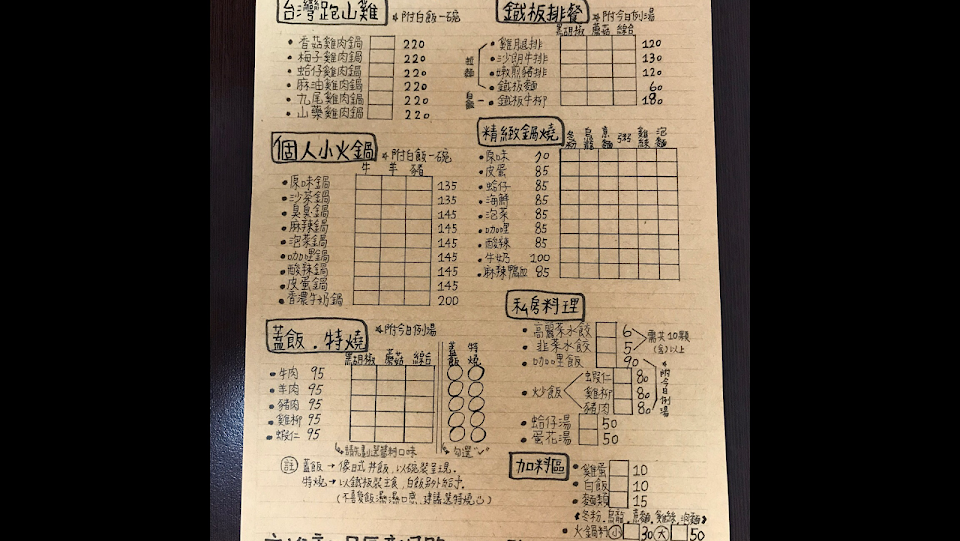 台灣跑山雞 *附白飯一碗
香菇雞肉鍋 220
梅子雞肉鍋 220
蛤仔雞肉鍋 220
麻油雞肉鍋 220
九尾雞肉鍋 220
山藥雞肉鍋 220
個人小火鍋 *附白飯一碗
牛 羊 豬
原味鍋 135
沙茶鍋 135
臭臭鍋 145
麻辣鍋 145
泡菜鍋 145
咖哩鍋 145
酸辣鍋 145
皮蛋鍋 145
香濃牛奶鍋 200
蓋飯.特燒 *附今日例湯
黑胡椒 蘑菇 綜合 蓋飯 特燒
牛肉 95
羊肉 95
豬肉 95
雞柳 95
蝦仁 95
請勾選醬料口味 勾選"✓"
註 蓋飯→像日式丼飯,以碗裝呈現.
特燒→以鐵板裝主食,白飯另外給予.
(不喜愛飯濕濕口感,建議選特燒)
鐵板排餐 *附今日例湯
黑胡椒 蘑菇 綜合
雞腿排 120
沙朗牛排 130
嫩煎豬排 120
鐵板麵 60
鐵板牛柳 180
白飯
精緻鍋燒
冬粉 烏龍 意麵 粥 雞絲 泡麵
原味 70
皮蛋 85
蛤仔 85
海鮮 85
泡菜 85
咖哩 85
酸辣 85
牛奶 100
麻辣鴨血 85
私房料理
高麗菜水餃 6
韭菜水餃 5
需共10顆(含)以上
咖哩飯 90
炒飯 蝦仁 80
雞柳 80
豬肉 80
*附今日例湯
蛤仔湯 50
蛋花湯 50
加料區
雞蛋 10
白飯 10
麵類 15
《冬粉.烏龍.意麵.雞絲.泡麵》
火鍋料 小 30 大 50